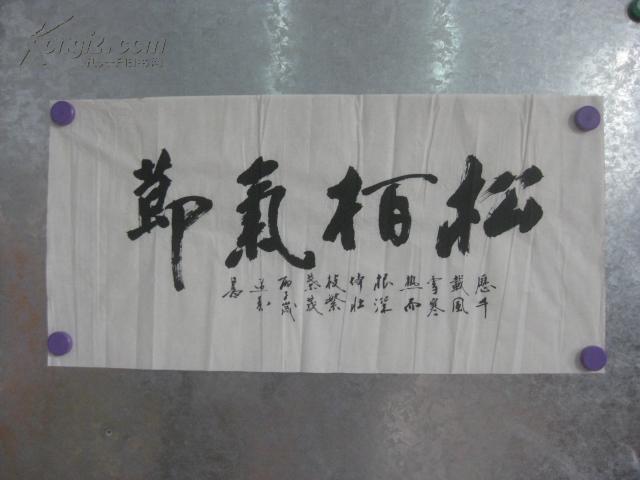 松柏氣節
歷千
載風
雪寒
熱而
根深
倚壯
枝繁
葉茂
丙子歲
書
Kongfz.com
孔夫子旧书网